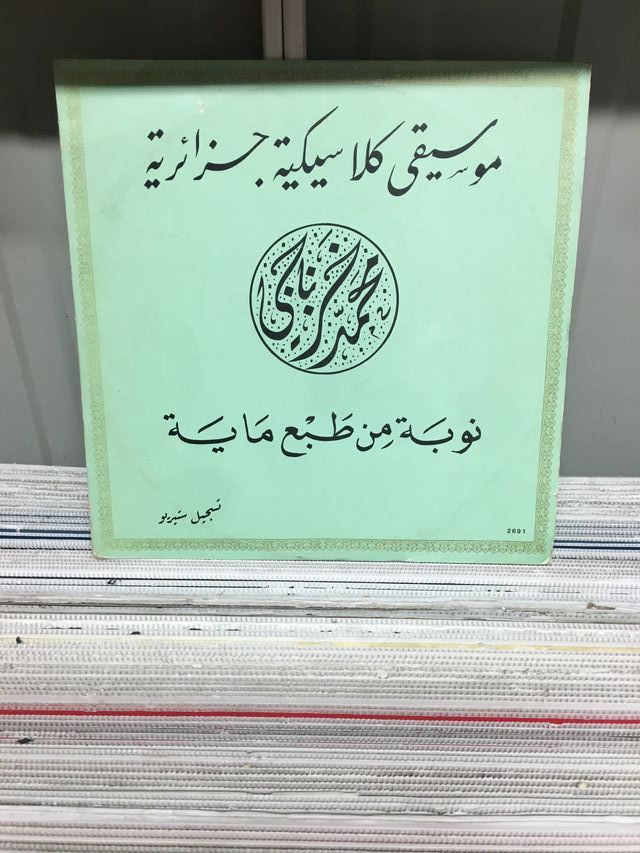 موسيقى كلاسيكية جزائرية
محمد خزناجي
نوبة مِن طَبْع مَايَة
تسجيل ستيريو
2691